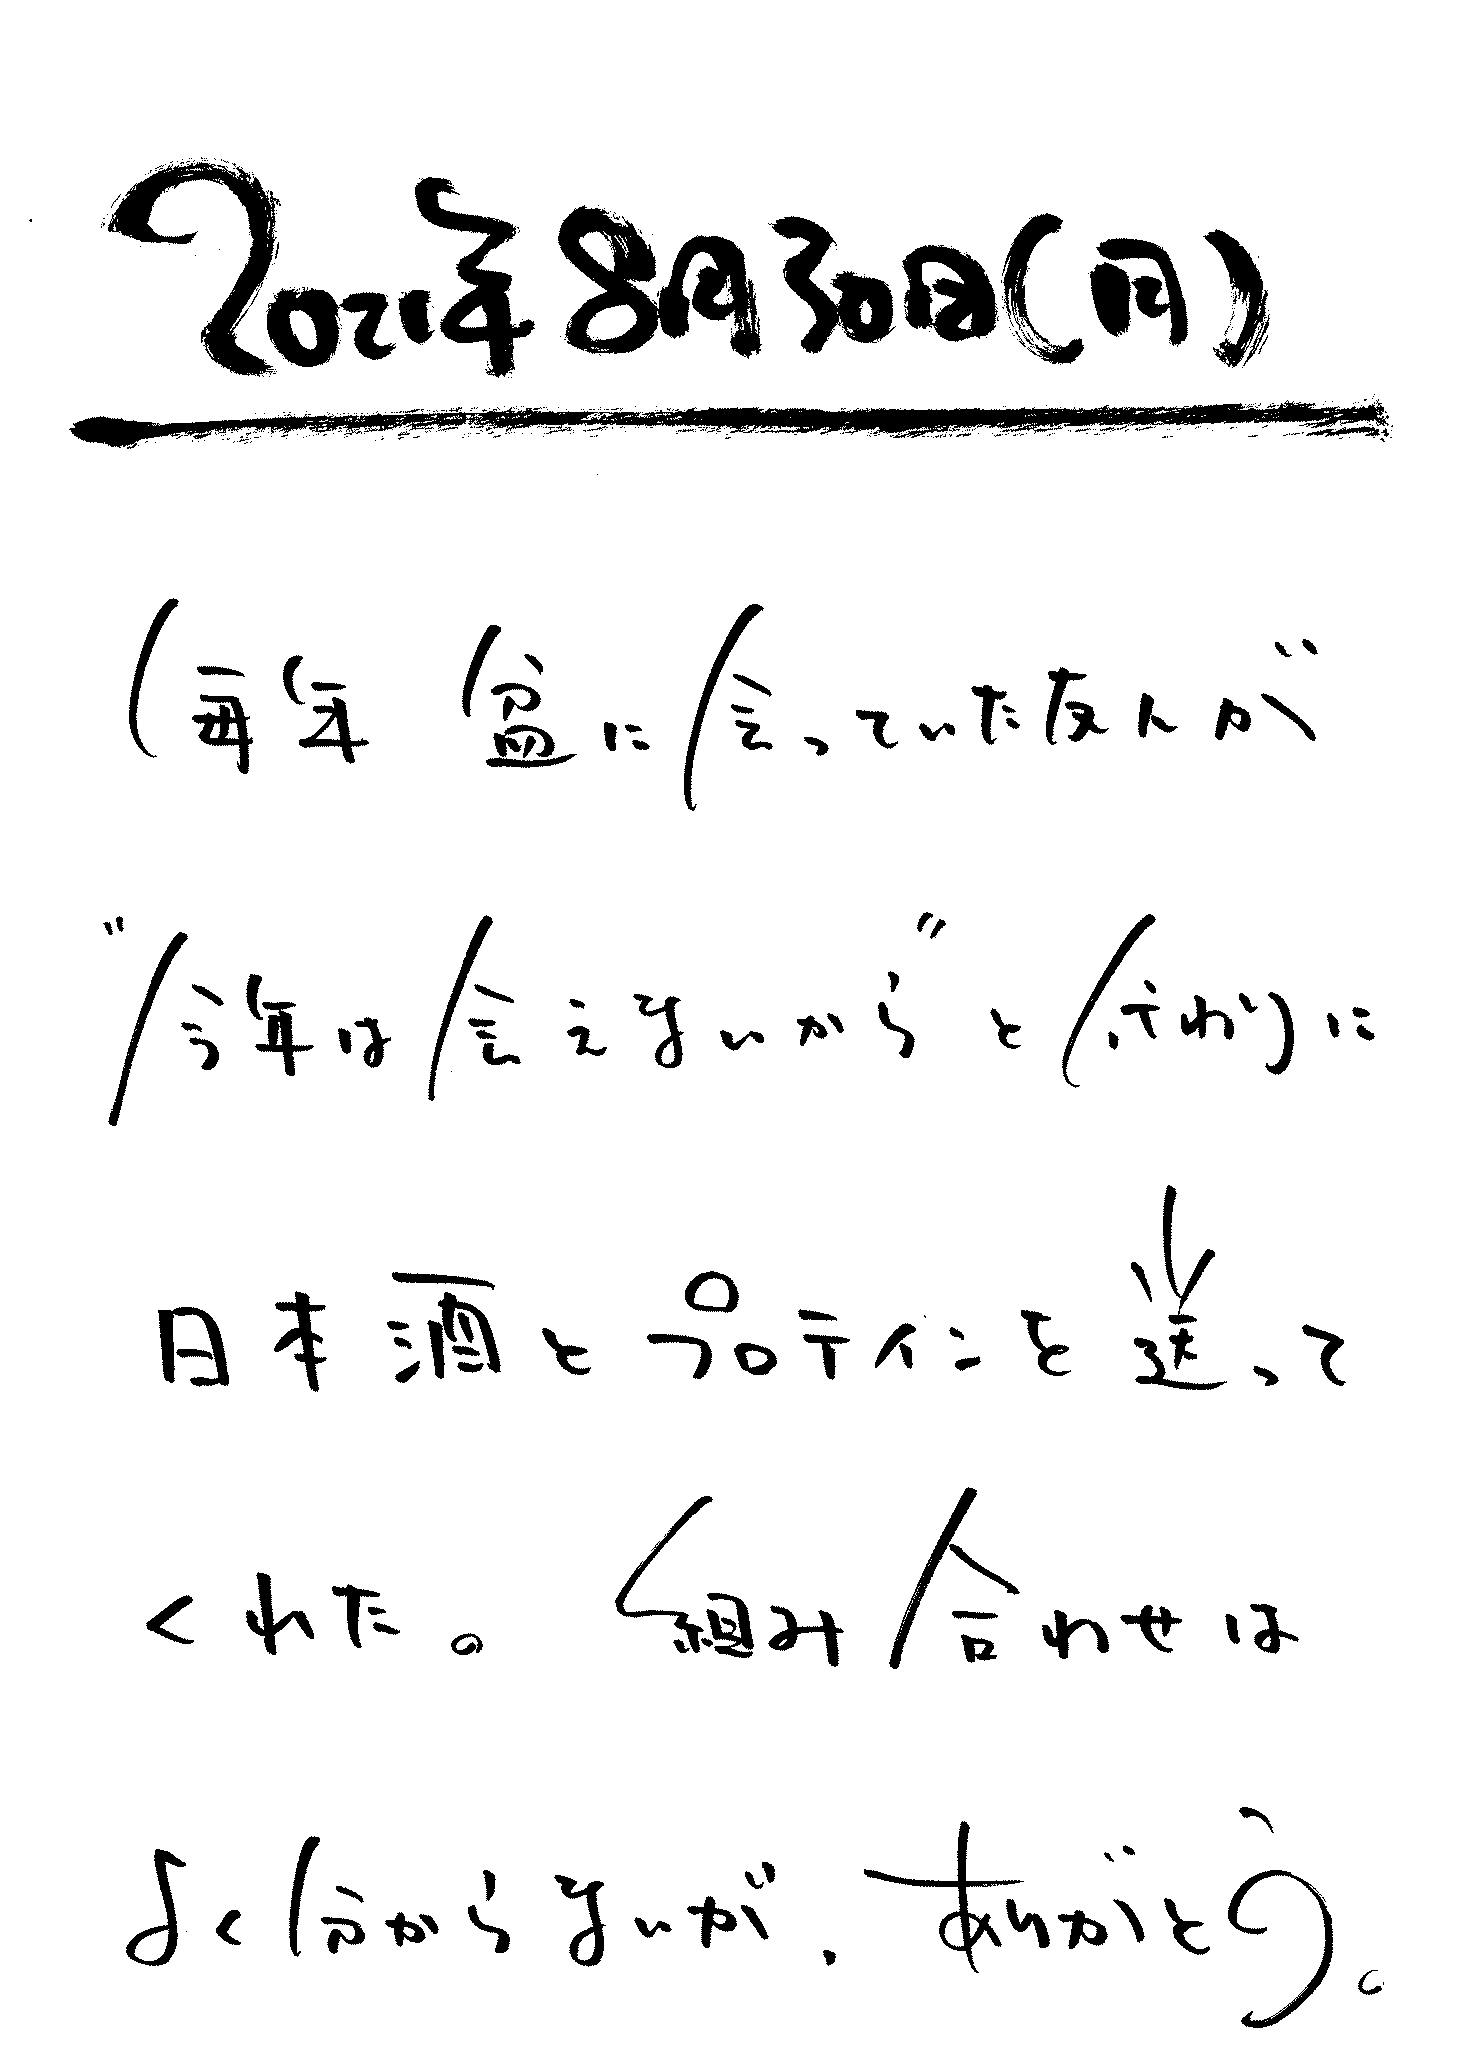 2021年8月30日(月)
毎年 盆に会っていた友人が
"今年は会えないから"と代わりに
日本酒とプロテインを送って
くれた。 組み合わせは
よく分からないが、ありがとう。